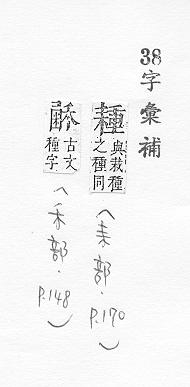 38字彙補
與栽種
之種同
(耒部.P.170)
古文
種字
(禾部.P.148)